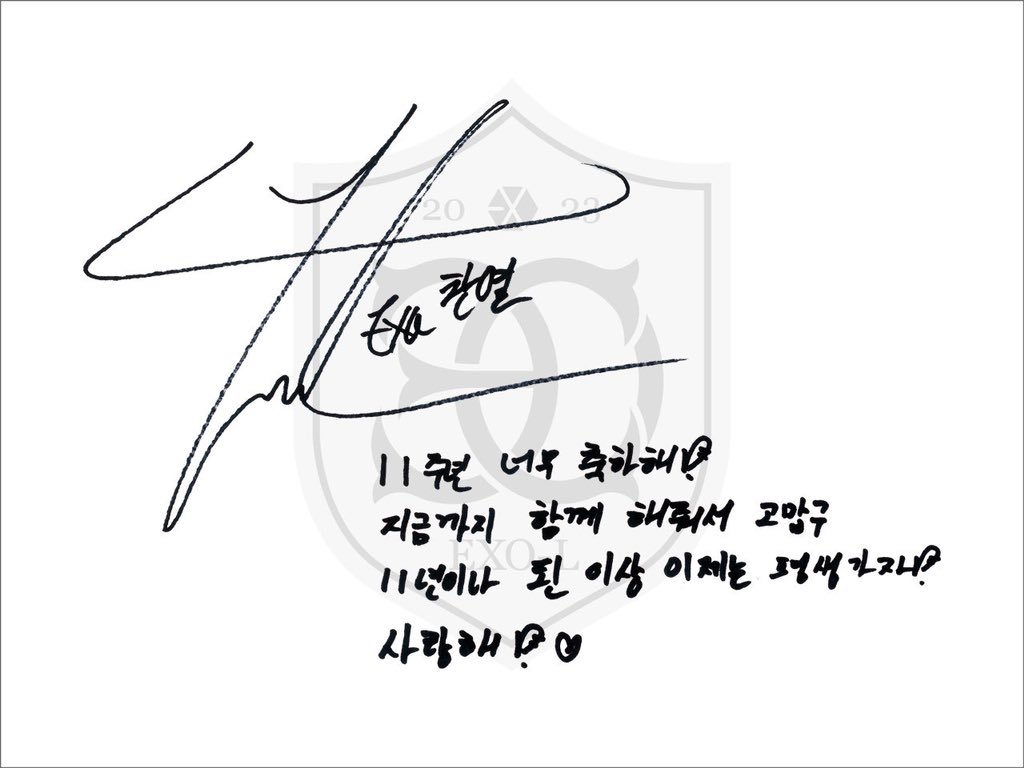 20 EXO 23
EXO 찬열
11주년 너무 축하해!
지금까지 함께 해줘서 고맙구
11년이나 된 이상 이제는 평생가자!
EXO-L
사랑해! ♡